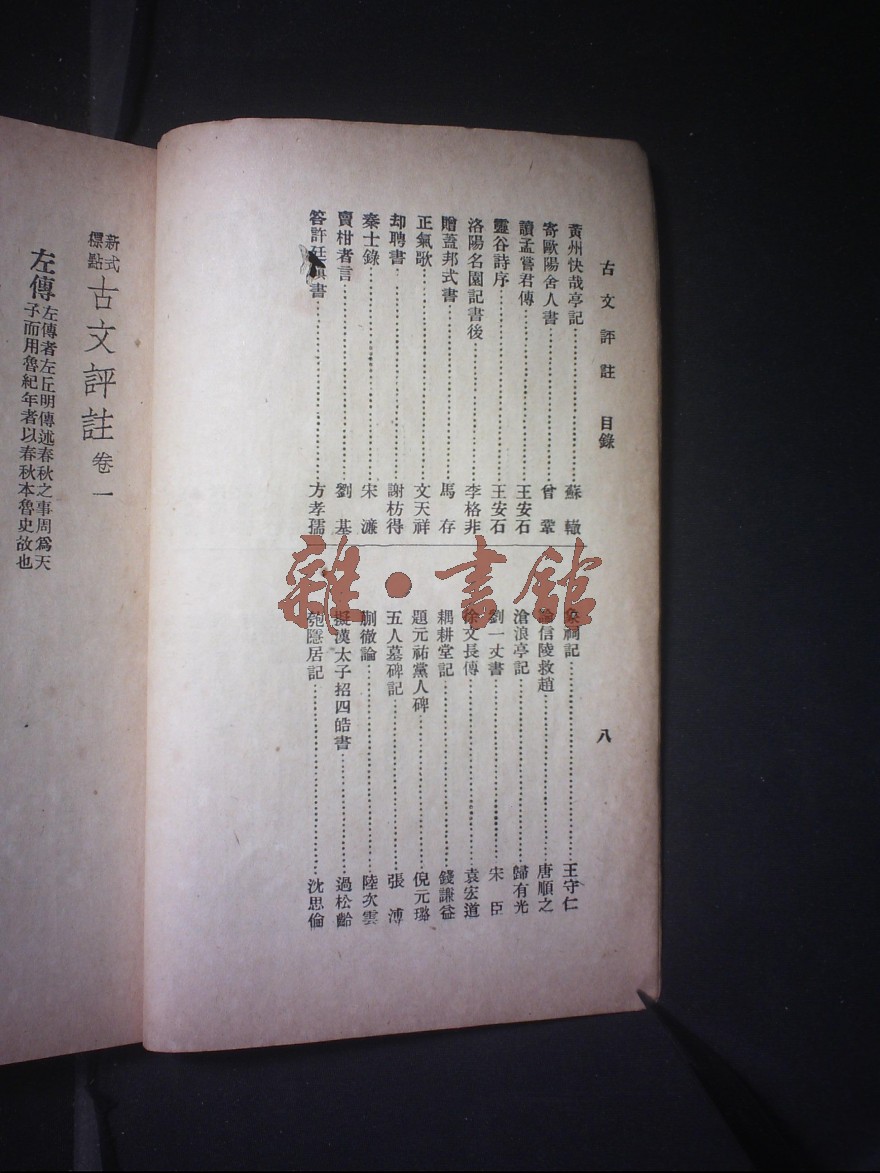 古文評註 目錄 八
黃州快哉亭記 蘇轍
寄歐陽舍人書 曾鞏
讀孟嘗君傳 王安石
靈谷詩序 王安石
洛陽名園記書後 李格非
贈蓋邦式書 馬存
正氣歌 文天祥
却聘書 謝枋得
秦士錄 宋濂
賣柑者言 劉基
答許廷 書 方孝孺
象祠記 王守仁
論信陵救趙 唐順之
滄浪亭記 歸有光
劉一丈書 宋臣
徐文長傳 袁宏道
耦耕堂記 錢謙益
題元祐黨人碑 倪元璐
五人墓碑記 張溥
蒯徹論 陸次雲
擬漢太子招四皓書 過松齡
匏隱居記 沈思倫
新式標點 古文評註 卷一
左傳
左傳者左丘明傳述春秋之事周爲天
子而用魯紀年者以春秋本魯史故也
雜·書館